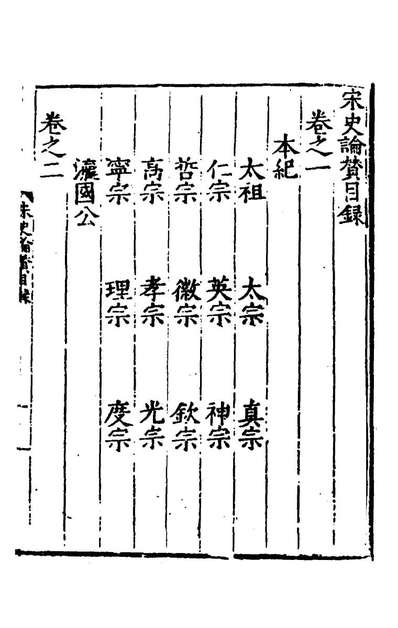 宋史論賛目録
卷之一
本紀
太祖 太宗 真宗
仁宗 英宗 神宗
哲宗 徽宗 欽宗
高宗 孝宗 光宗
寧宗 理宗 度宗
瀛國公
卷之二
宋史論賛目録